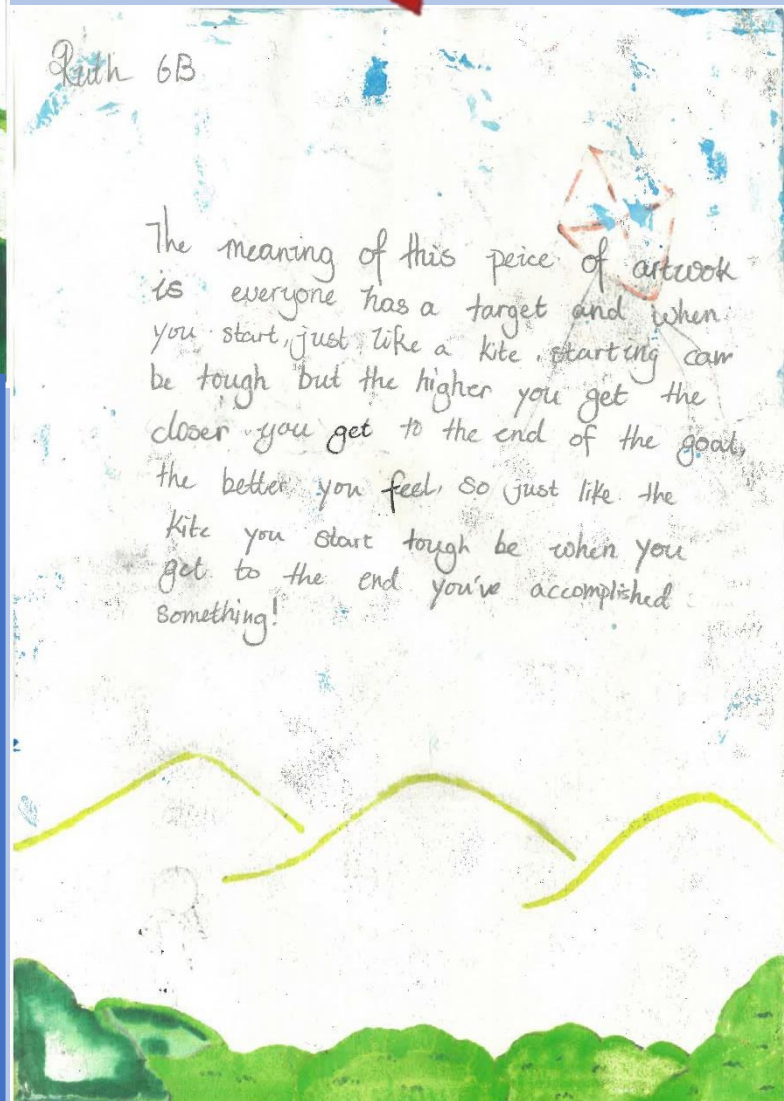 Ruth 6B
The meaning of this peice of artwook
is everyone has a target and when
you start, just like a kite, starting can
be tough but the higher you get the
closer you get to the end of the goal,
the better you feel, so just like the
kite you start tough be when you
get to the end you've accomplished
something!